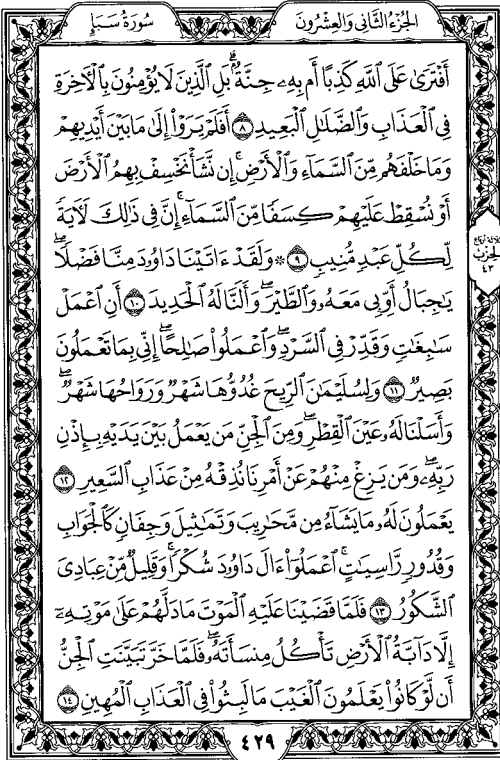 سُورَةُ سَبَإٍ
الجُزْءُ الثَّانِي وَالعِشْرُونَ
أَفْتَرَىٰ عَلَى ٱللَّهِ كَذِبًا أَم بِهِۦ جِنَّةٌۢ ۗ بَلِ ٱلَّذِينَ لَا يُؤْمِنُونَ بِٱلْأَخِرَةِ
فِى ٱلْعَذَابِ وَٱلضَّلَٰلِ ٱلْبَعِيدِ ٨ أَفَلَمْ يَرَوْا۟ إِلَىٰ مَا بَيْنَ أَيْدِيهِمْ
وَمَا خَلْفَهُم مِّنَ ٱلسَّمَآءِ وَٱلْأَرْضِ ۚ إِن نَّشَأْ نَخْسِفْ بِهِمُ ٱلْأَرْضَ
أَوْ نُسْقِطْ عَلَيْهِمْ كِسَفًا مِّنَ ٱلسَّمَآءِ ۚ إِنَّ فِى ذَٰلِكَ لَـَٔايَةً
لِّكُلِّ عَبْدٍ مُّنِيبٍ ٩ ۞ وَلَقَدْ ءَاتَيْنَا دَاوُۥدَ مِنَّا فَضْلًا ۖ
يَٰجِبَالُ أَوِّبِى مَعَهُۥ وَٱلطَّيْرَ ۖ وَأَلَنَّا لَهُ ٱلْحَدِيدَ ١٠ أَنِ ٱعْمَلْ
سَٰبِغَٰتٍ وَقَدِّرْ فِى ٱلسَّرْدِ ۖ وَٱعْمَلُوا۟ صَٰلِحًا ۖ إِنِّى بِمَا تَعْمَلُونَ
بَصِيرٌ ١١ وَلِسُلَيْمَٰنَ ٱلرِّيحَ غُدُوُّهَا شَهْرٌ وَرَوَاحُهَا شَهْرٌ ۖ
وَأَسَلْنَا لَهُۥ عَيْنَ ٱلْقِطْرِ ۖ وَمِنَ ٱلْجِنِّ مَن يَعْمَلُ بَيْنَ يَدَيْهِ بِإِذْنِ
رَبِّهِۦ ۖ وَمَن يَزِغْ مِنْهُمْ عَنْ أَمْرِنَا نُذِقْهُ مِنْ عَذَابِ ٱلسَّعِيرِ ١٢
يَعْمَلُونَ لَهُۥ مَا يَشَآءُ مِن مَّحَٰرِيبَ وَتَمَٰثِيلَ وَجِفَانٍ كَٱلْجَوَابِ
وَقُدُورٍ رَّاسِيَٰتٍ ۚ ٱعْمَلُوٓا۟ ءَالَ دَاوُۥدَ شُكْرًا ۚ وَقَلِيلٌ مِّنْ عِبَادِىَ
ٱلشَّكُورُ ١٣ فَلَمَّا قَضَيْنَا عَلَيْهِ ٱلْمَوْتَ مَا دَلَّهُمْ عَلَىٰ مَوْتِهِۦٓ
إِلَّا دَآبَّةُ ٱلْأَرْضِ تَأْكُلُ مِنسَأَتَهُۥ ۖ فَلَمَّا خَرَّ تَبَيَّنَتِ ٱلْجِنُّ
أَن لَّوْ كَانُوا۟ يَعْلَمُونَ ٱلْغَيْبَ مَا لَبِثُوا۟ فِى ٱلْعَذَابِ ٱلْمُهِينِ ١٤
الحِزْبُ
٤٣
٤٢٩